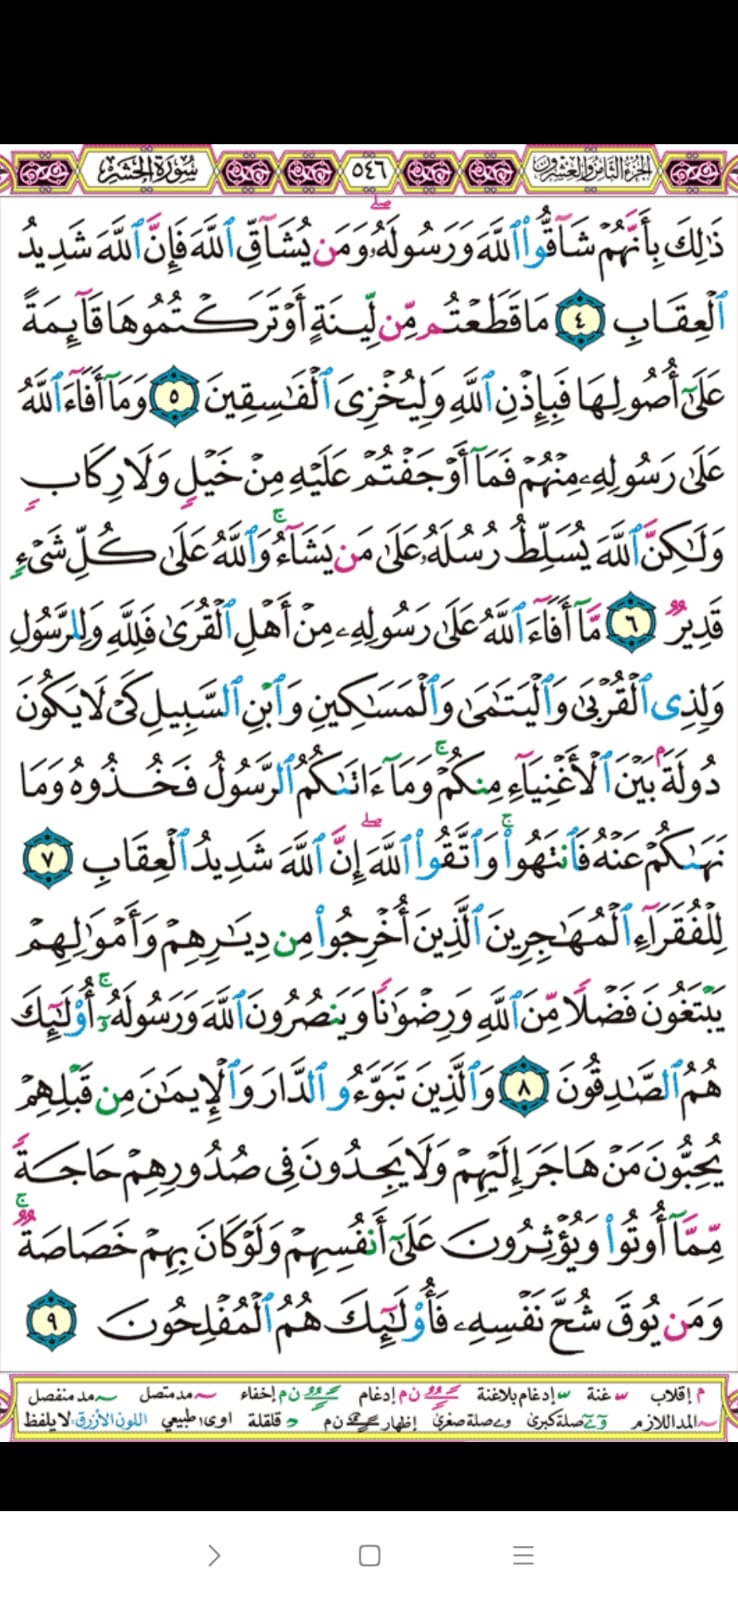 الجزء الثامن والعشرون ٥٤٦ سورة الحشر
ذَٰلِكَ بِأَنَّهُمْ شَآقُّوا۟ ٱللَّهَ وَرَسُولَهُۥ ۖ وَمَن يُشَآقِّ ٱللَّهَ فَإِنَّ ٱللَّهَ شَدِيدُ
ٱلْعِقَابِ ٤ مَا قَطَعْتُم مِّن لِّينَةٍ أَوْ تَرَكْتُمُوهَا قَآئِمَةً
عَلَىٰٓ أُصُولِهَا فَبِإِذْنِ ٱللَّهِ وَلِيُخْزِىَ ٱلْفَٰسِقِينَ ٥ وَمَآ أَفَآءَ ٱللَّهُ
عَلَىٰ رَسُولِهِۦ مِنْهُمْ فَمَآ أَوْجَفْتُمْ عَلَيْهِ مِنْ خَيْلٍ وَلَا رِكَابٍ
وَلَٰكِنَّ ٱللَّهَ يُسَلِّطُ رُسُلَهُۥ عَلَىٰ مَن يَشَآءُ ۚ وَٱللَّهُ عَلَىٰ كُلِّ شَىْءٍ
قَدِيرٌ ٦ مَّآ أَفَآءَ ٱللَّهُ عَلَىٰ رَسُولِهِۦ مِنْ أَهْلِ ٱلْقُرَىٰ فَلِلَّهِ وَلِلرَّسُولِ
وَلِذِى ٱلْقُرْبَىٰ وَٱلْيَتَٰمَىٰ وَٱلْمَسَٰكِينِ وَٱبْنِ ٱلسَّبِيلِ كَىْ لَا يَكُونَ
دُولَةًۢ بَيْنَ ٱلْأَغْنِيَآءِ مِنكُمْ ۚ وَمَآ ءَاتَىٰكُمُ ٱلرَّسُولُ فَخُذُوهُ وَمَا
نَهَىٰكُمْ عَنْهُ فَٱنتَهُوا۟ ۚ وَٱتَّقُوا۟ ٱللَّهَ ۖ إِنَّ ٱللَّهَ شَدِيدُ ٱلْعِقَابِ ٧
لِلْفُقَرَآءِ ٱلْمُهَٰجِرِينَ ٱلَّذِينَ أُخْرِجُوا۟ مِن دِيَٰرِهِمْ وَأَمْوَٰلِهِمْ
يَبْتَغُونَ فَضْلًا مِّنَ ٱللَّهِ وَرِضْوَٰنًا وَيَنصُرُونَ ٱللَّهَ وَرَسُولَهُۥٓ ۚ أُو۟لَٰٓئِكَ
هُمُ ٱلصَّٰدِقُونَ ٨ وَٱلَّذِينَ تَبَوَّءُو ٱلدَّارَ وَٱلْإِيمَٰنَ مِن قَبْلِهِمْ
يُحِبُّونَ مَنْ هَاجَرَ إِلَيْهِمْ وَلَا يَجِدُونَ فِى صُدُورِهِمْ حَاجَةً
مِّمَّآ أُوتُوا۟ وَيُؤْثِرُونَ عَلَىٰٓ أَنفُسِهِمْ وَلَوْ كَانَ بِهِمْ خَصَاصَةٌ ۚ
وَمَن يُوقَ شُحَّ نَفْسِهِۦ فَأُو۟لَٰٓئِكَ هُمُ ٱلْمُفْلِحُونَ ٩
م إقلاب غنة إدغام بلاغنة ن م إدغام ن م إخفاء مد متصل مد منفصل
المد اللازم صلة كبرى صلة صغرى إظهار ن م قلقلة اوى طبيعي اللون الأزرق: لا يلفظ